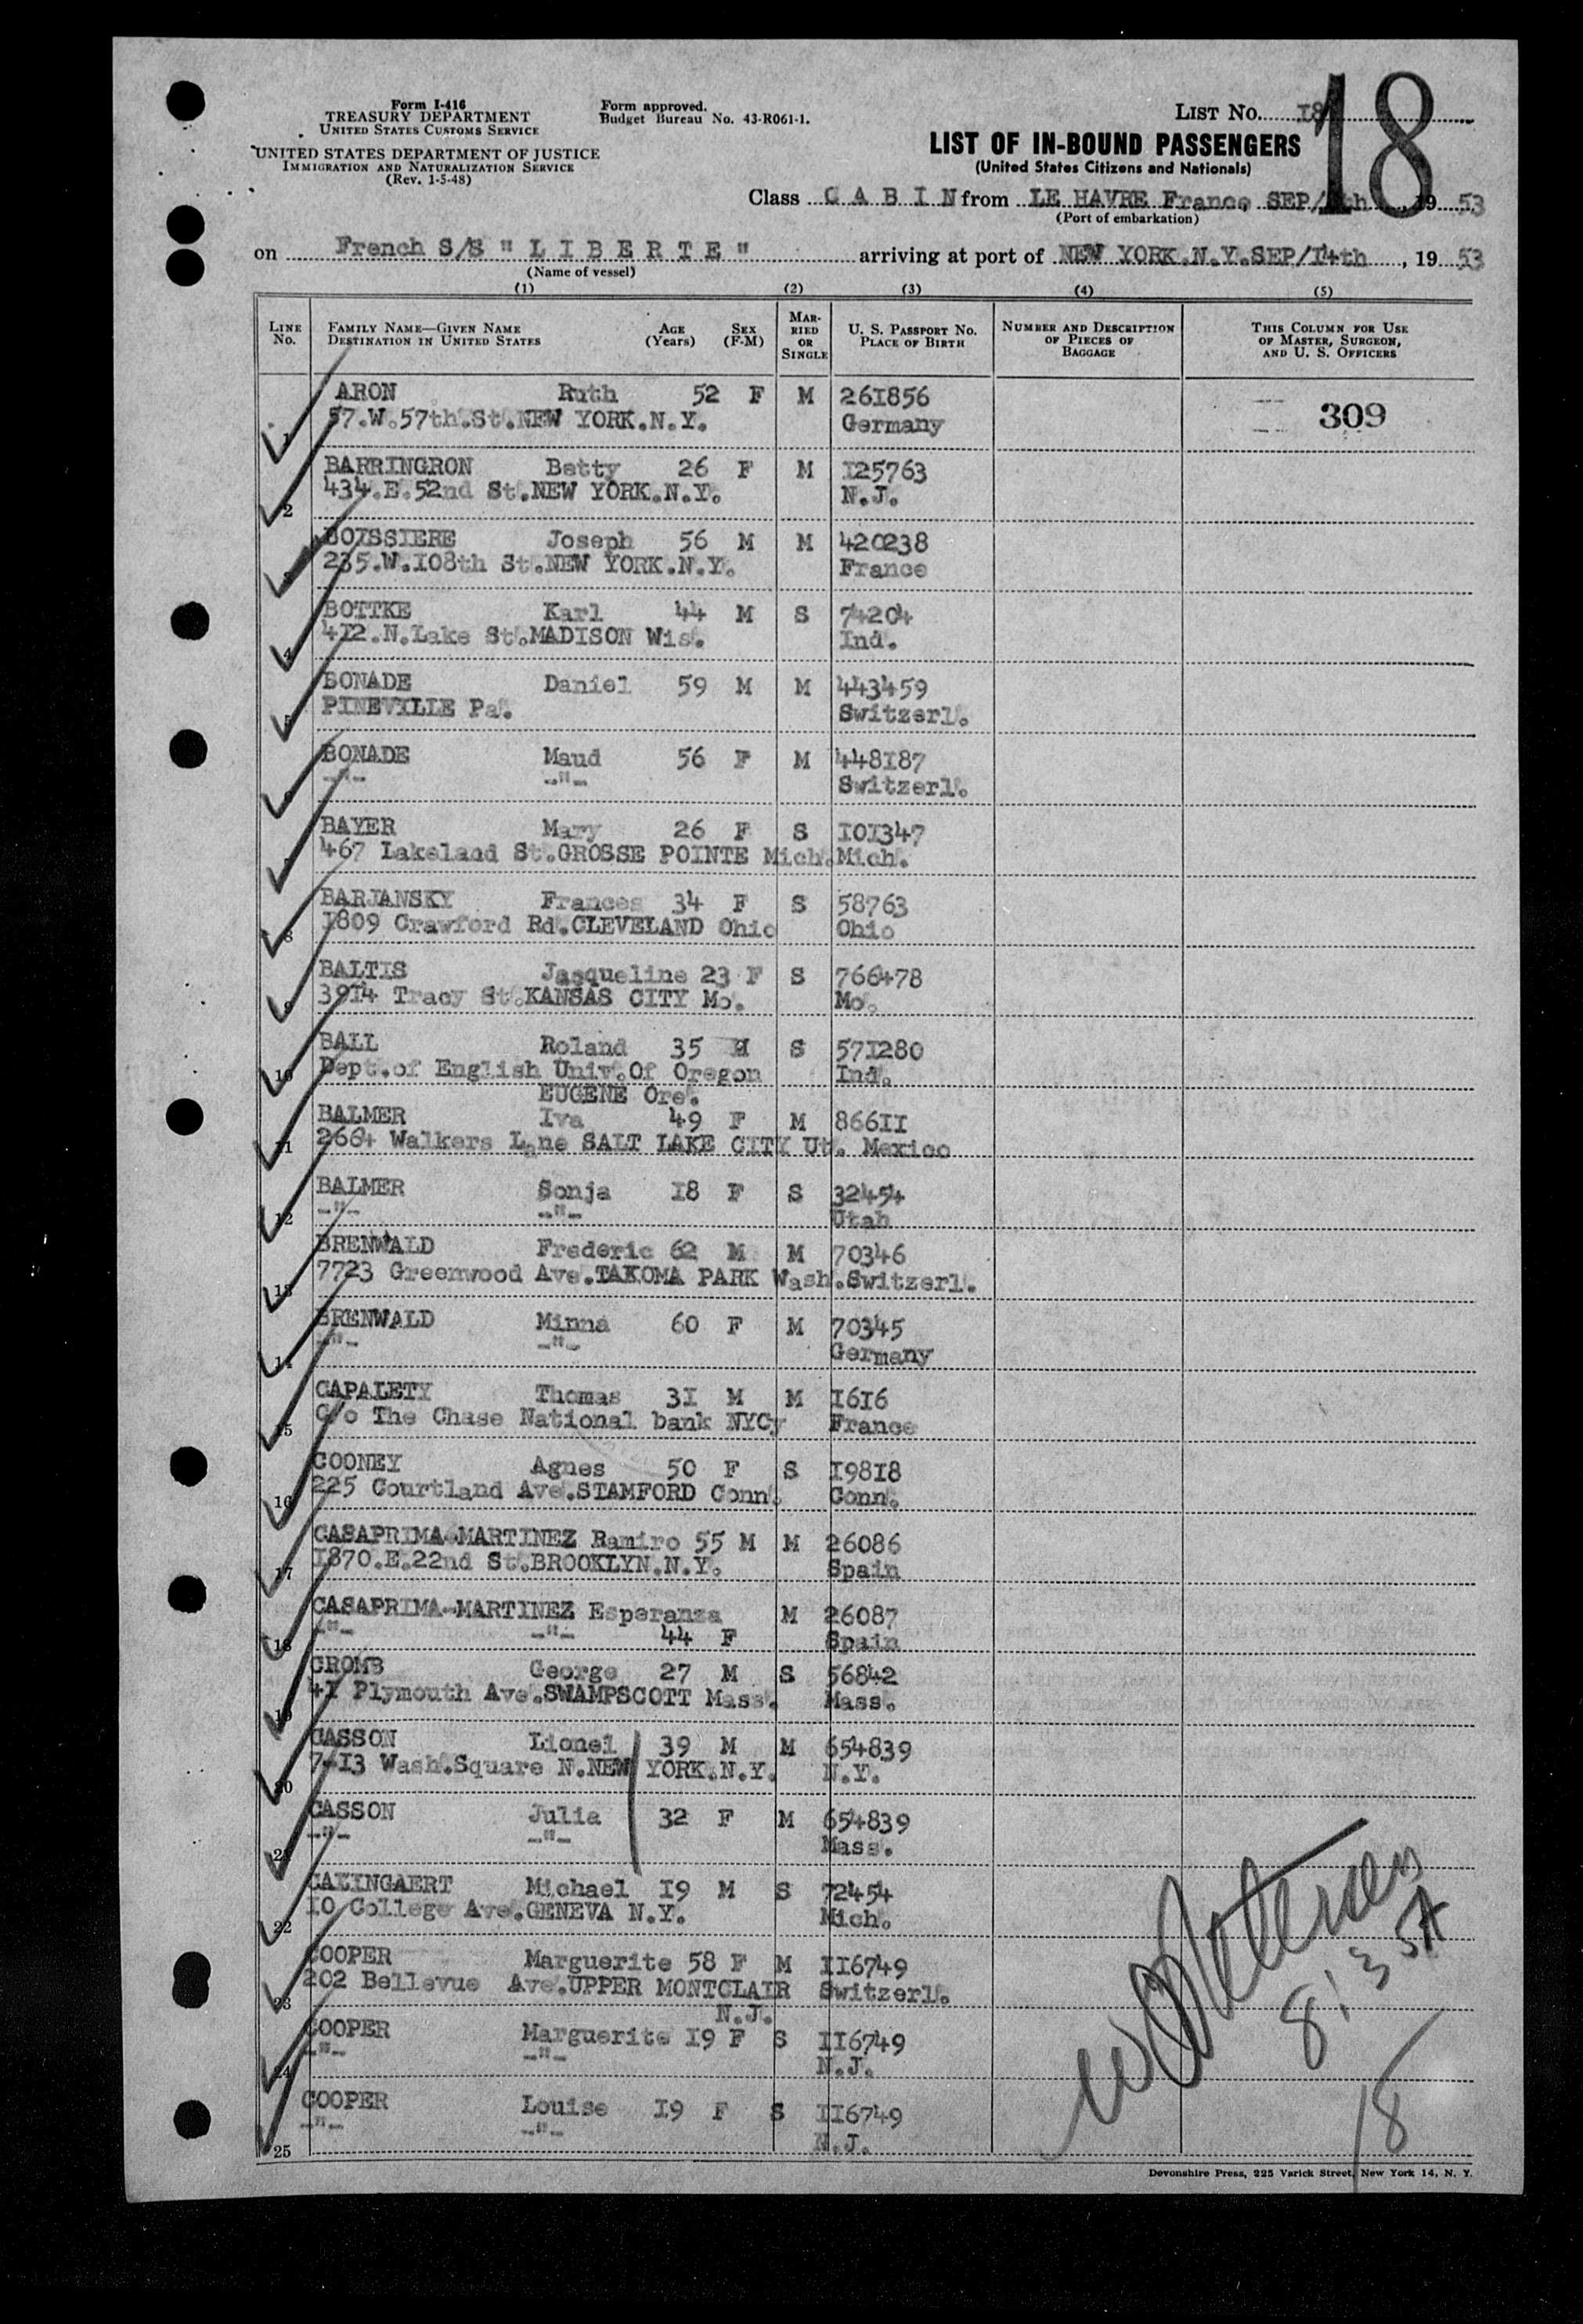 Form I-416
TREASURY DEPARTMENT
UNITED STATES CUSTOMS SERVICE
UNITED STATES DEPARTMENT OF JUSTICE
IMMIGRATION AND NATURALIZATION SERVICE
(Rev. 1-5-48)
Form approved.
Budget Bureau No. 43-R061-1.
LIST No. 18
18
LIST OF IN-BOUND PASSENGERS
(United States Citizens and Nationals)
Class C A B I N from LE HAVRE France, SEP/ th, 19 53
(Port of embarkation)
on French S/S " L I B E R T E " arriving at port of NEW YORK.N.Y.SEP/I4th, 19 53
(Name of vessel)
(1) (2) (3) (4) (5)
LINE No. FAMILY NAME—GIVEN NAME DESTINATION IN UNITED STATES AGE (Years) SEX (F-M) MARRIED OR SINGLE U. S. PASSPORT No. PLACE OF BIRTH NUMBER AND DESCRIPTION OF PIECES OF BAGGAGE THIS COLUMN FOR USE OF MASTER, SURGEON, AND U. S. OFFICERS
1 ARON Ruth 52 F M 26I856
57.W.57th.St.NEW YORK.N.Y. Germany 309
BARRINGRON Betty 26 F M I25763
2 434.E.52nd St.NEW YORK.N.Y. N.J.
BOISSIERE Joseph 56 M M 420238
3 235.W.I08th St.NEW YORK.N.Y. France
BOTTKE Karl 44 M S 74204
4 4I2.N.Lake St.MADISON Wis. Ind.
BONADE Daniel 59 M M 443459
5 PINEVILLE Pa. Switzerl.
BONADE Maud 56 F M 448I87
6 -"- -"- Switzerl.
BAYER Mary 26 F S I0I347
467 Lakeland St.GROSSE POINTE Mich. Mich.
BARJANSKY Frances 34 F S 58763
8 I809 Crawford Rd.CLEVELAND Ohio Ohio
BALTIS Jasqueline 23 F S 766478
9 39I4 Tracy St.KANSAS CITY Mo. Mo.
BALL Roland 35 M S 57I280
10 Dept.of English Univ.Of Oregon Ind.
EUGENE Ore.
BALMER Iva 49 F M 866II
11 2664 Walkers Lane SALT LAKE CITY Ut. Mexico
BALMER Sonja I8 F S 32454
12 -"- -"- Utah
BRENWALD Frederic 62 M M 70346
13 7723 Greenwood Ave.TAKOMA PARK Wash.Switzerl.
BRENWALD Minna 60 F M 70345
14 -"- -"- Germany
CAPALETY Thomas 3I M M I6I6
15 C/o The Chase National bank NYCy France
COONEY Agnes 50 F S I98I8
16 225 Courtland Ave.STAMFORD Conn. Conn.
CASAPRIMA-MARTINEZ Ramiro 55 M M 26086
17 I870.E.22nd St.BROOKLYN.N.Y. Spain
CASAPRIMA-MARTINEZ Esperanza M 26087
18 -"- -"- 44 F Spain
CROMB George 27 M S 56842
19 4I Plymouth Ave.SWAMPSCOTT Mass. Mass.
CASSON Lionel 39 M M 654839
20 7-I3 Wash.Square N.NEW YORK.N.Y. N.Y.
CASSON Julia 32 F M 654839
21 -"- -"- Mass.
CALINGAERT Michael I9 M S 72454
22 I0 College Ave.GENEVA N.Y. Mich.
COOPER Marguerite 58 F M II6749
23 202 Bellevue Ave.UPPER MONTCLAIR Switzerl.
N.J.
COOPER Marguerite I9 F S II6749
24 -"- -"- N.J.
COOPER Louise I9 F S II6749
25 -"- -"- N.J.
18
Devonshire Press, 225 Varick Street, New York 14, N. Y.